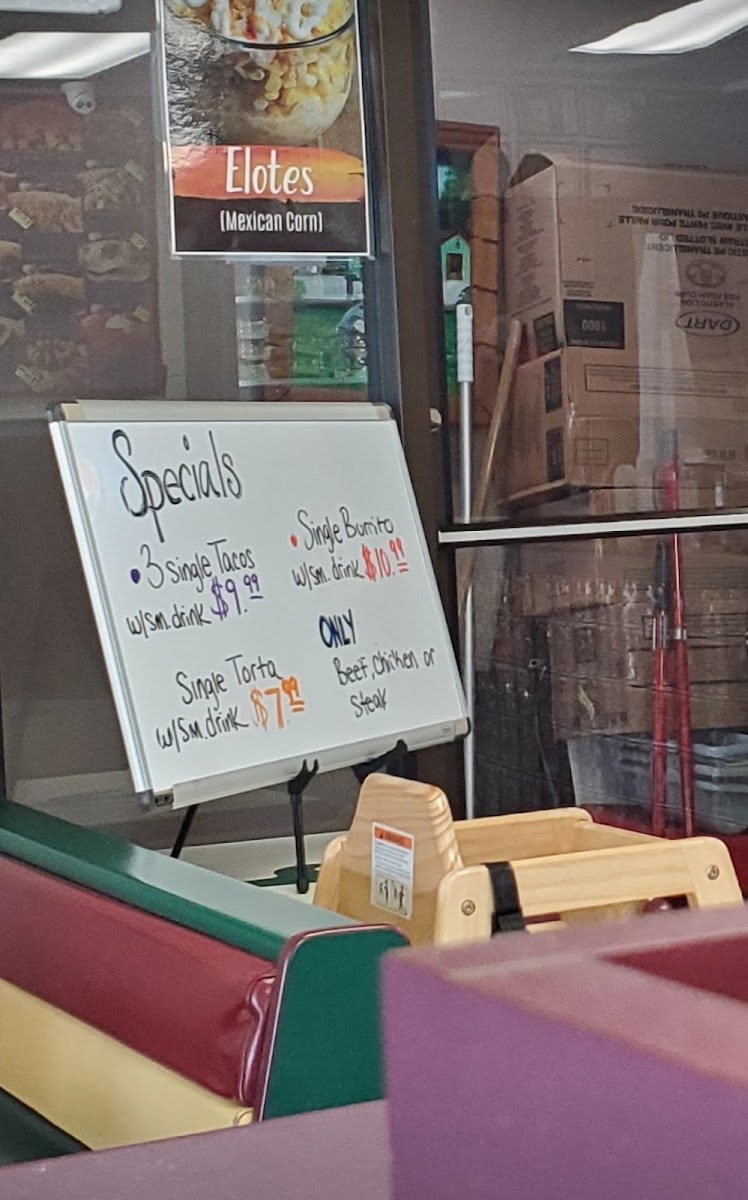 Elotes
(Mexican Corn)
Specials
• 3 single Tacos
w/sm. drink $9.99
Single Torta
w/sm. drink $7.99
• Single Burrito
w/sm. drink $10.99
ONLY
Beef, chicken or
steak
DART
1000